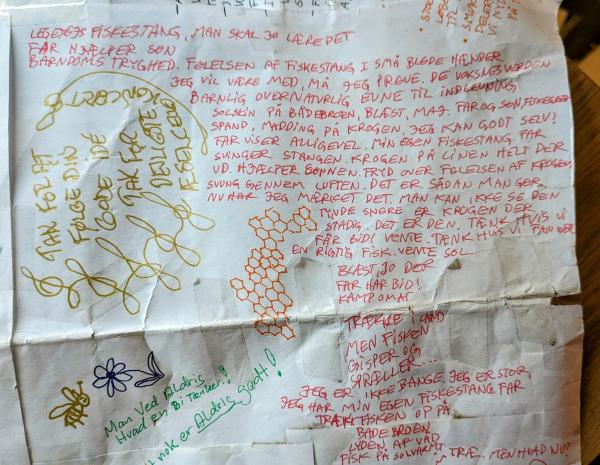 LEGETØJS FISKESTANG, MAN SKAL JO LÆRE DET
FAR HJÆLPER SØN
BARNDOMS TRYGHED. FØLELSEN AF FISKESTANG I SMÅ BLØDE HÆNDER
JEG VIL VÆRE MED, MÅ JEG PRØVE. DE VOKSNES VERDEN
BARNLIG OVERNATURLIG EVNE TIL INDLEVNING
SOLSKIN PÅ BÅDEBROEN, BLÆST, MAJ. FAR OG SØN, FISKEGREJ
SPAND, MADDING PÅ KROGEN, JEG KAN GODT SELV!
FAR VISER ALLIGEVEL. MIN EGEN FISKESTANG. FAR
SVINGER STANGEN. KROGEN PÅ LINEN HELT DER
UD. HJÆLPER SØNNEN. FRYD OVER FØLELSEN AF KROGEN,
SVUNG GENNEM LUFTEN. DET ER SÅDAN MAN GØR.
NU HAR JEG MÆRKET DET. MAN KAN IKKE SE DEN
TYNDE SNØRE ER KROGEN DER
STADIG. DET ER DEN. TÆNK HVIS VI
FÅR BID! VENTE. TÆNK HVIS VI FÅR DER
EN RIGTIG FISK. VENTE SOL.
BLÆST, JO DER
FAR HAR BID!
KAMP OM AT
TRÆKKE I LAND
MEN FISKEN
GISPER OG
SPRÆLLER...
JEG ER IKKE BANGE. JEG ER STOR
JEG HAR MIN EGEN FISKESTANG. FAR
TRÆK FISKEN OP PÅ
BÅDEBROEN
LYDEN AF VÅD
FISK PÅ SOLVARMT TRÆ. MEN HVAD NU?
TAK FOR AT
FØLGE DIN
GODE IDE
TAK FOR
DEJLIGSTE
Man Ved Aldrig
Hvad en Bi Tænker!
nok er Aldrig godt!